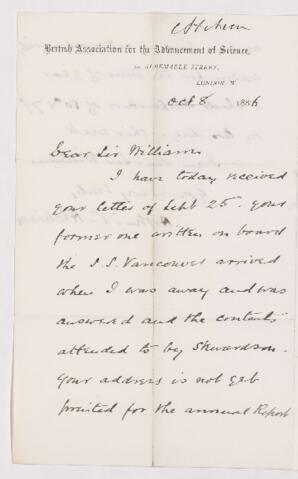 Atchison
British Association for the Advancement of Science,
22 ALBEMARLE STREET,
LONDON, W.
Oct 8 1886
Dear Sir William
I have today received
your letter of Sept 25. Your
former one written on board
the S.S. Vancouver arrived
when I was away and was
answered and the contents
attended to by Stewardson.
Your address is not yet
printed for the annual Report